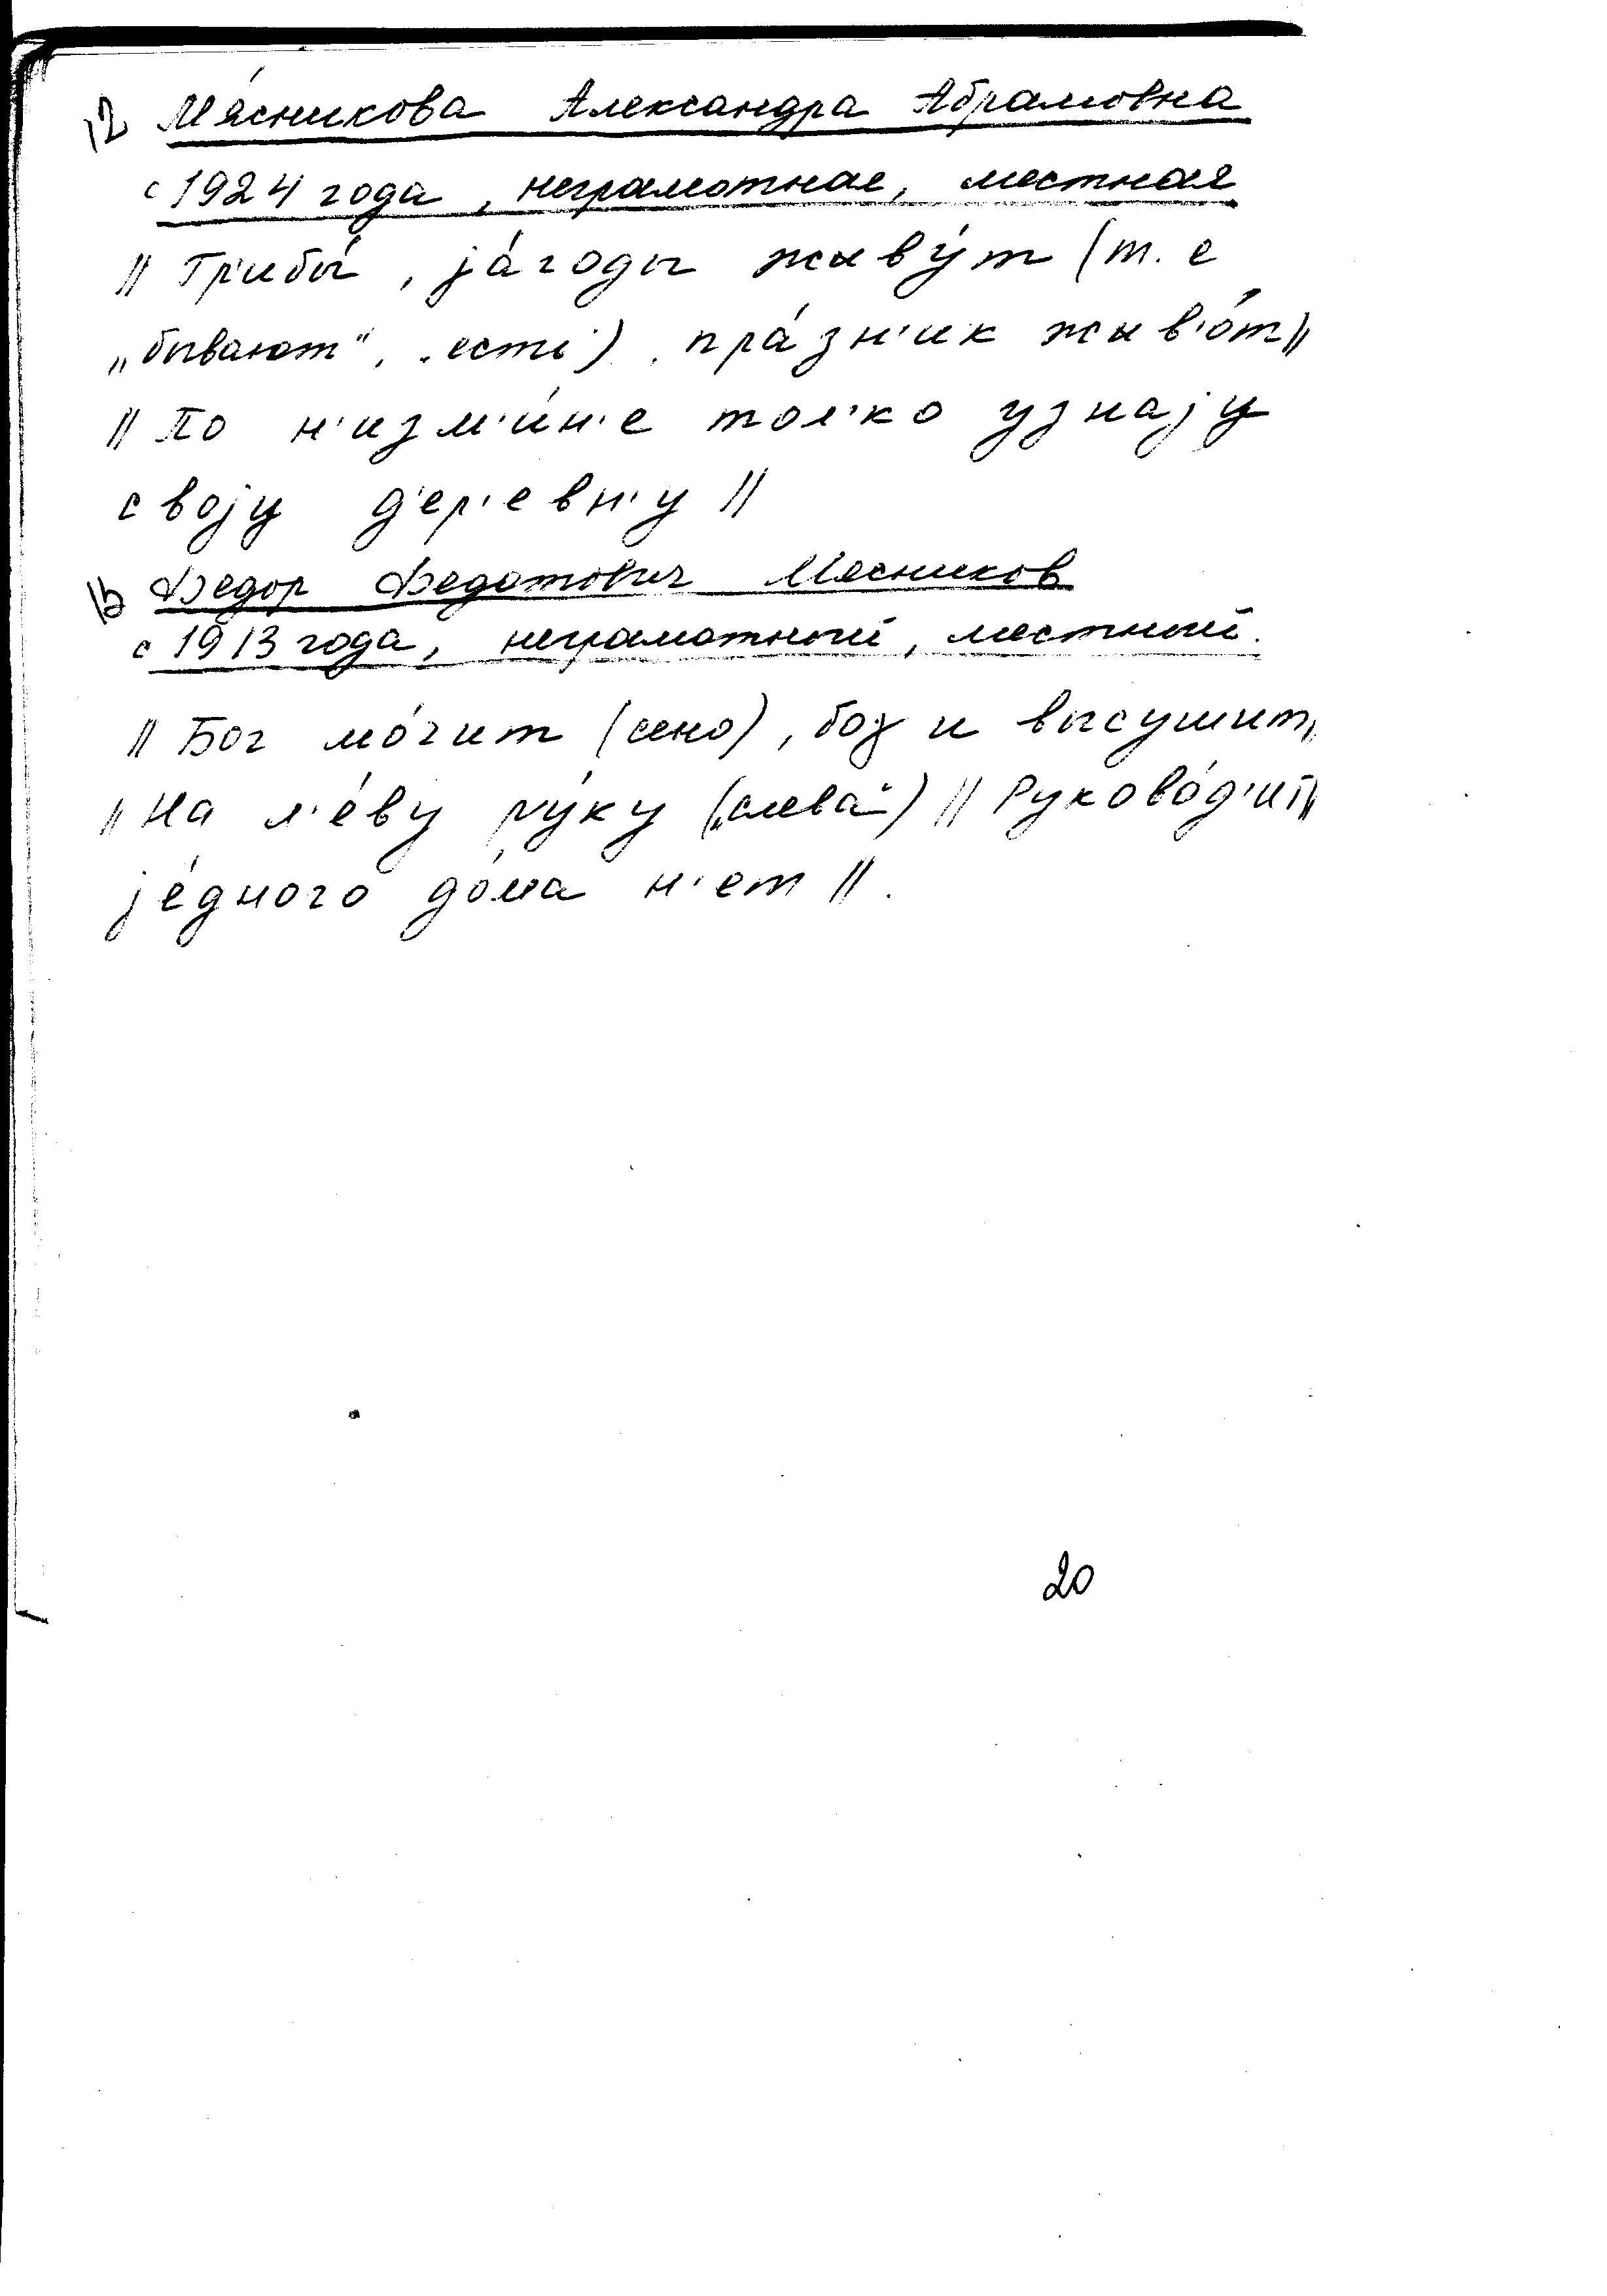 12 Мя́сникова Александра Абрамовна
с 1924 года, неграмотная, местная
|| Гр'ибы́, jа́годы жыву́т (т. е
„бывают“, „есть“), пра́зн'ик жыв'о́т ||
|| По н'изм'и́н'е тол'ко узнаjу
своjу д'ер'евн'у ||
13 Федор Федотович Мясников
с 1913 года, неграмотный, местный.
|| Бог мо́чит (сено), бог и высушит ||
|| На л'е́ву ру́ку („слева“) || Руково́д'ит ||
jе́дного до́ма н'ет ||.
20